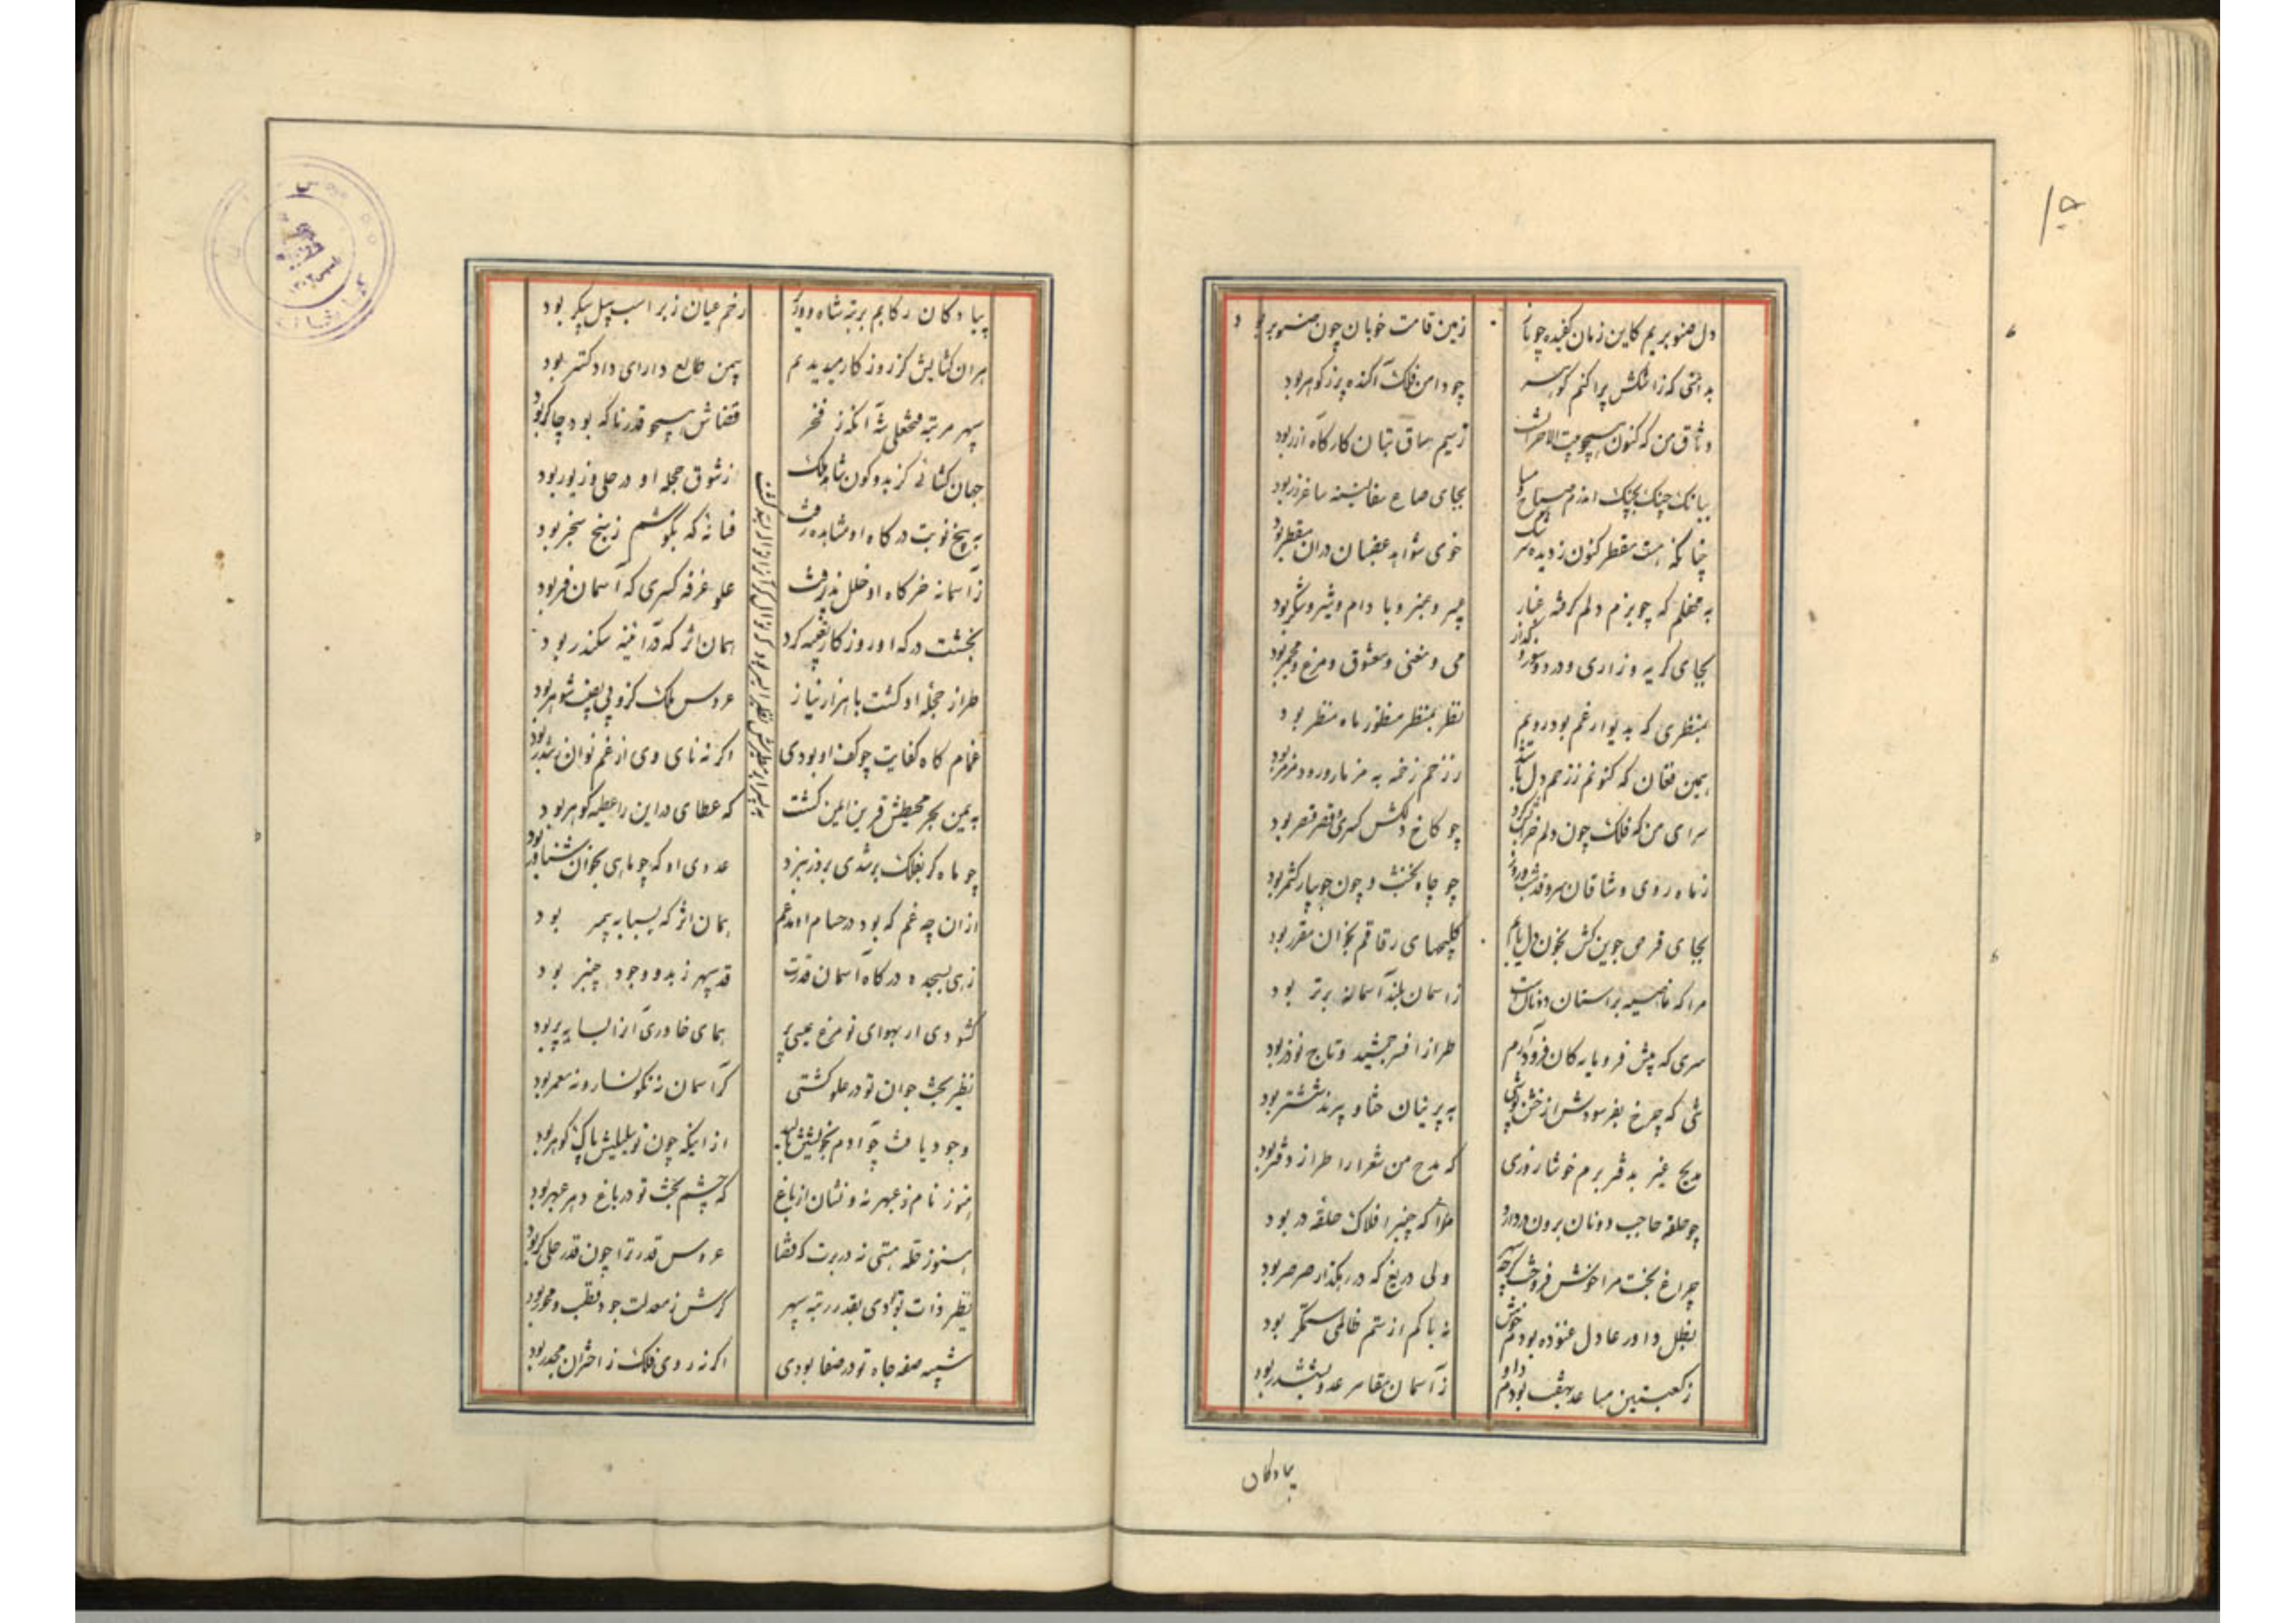 دل صنوبریم کاین زمان کفیده چو نار
زمین قامت خوبان چون صنوبر بود
بدامنی که ز اشکش پر اکنم کوهر
چو دامن فلک آکنده پر ز کوهر بود
وثاق من که کنون همچو بیت الاحزانست
ز سیم ساق بتان کارگاه آزر بود
ببانک چنک بچنک اندرم صباح و مسا
بجای صاع سفالینه ساغر زر بود
خوی بود
به محفلم که چو بزم دلم گرفته غبار
عبیر و عنبر و بادام و شیر و شکر بود
بجای گریه و زاری و درد و سوز و گداز
می و مغنی و معشوق و مرغ و مجمر بود
بمنظری که بدیوار غم بود رویم
نظر بمنظر منظور ماه منظر بود
همین فغان که کنونم ز زخم دل باشد
ز زخم زخمه به مزمار و رود و مزمر بود
سرای من که فلک چون دلم خرابش کرد
چو کاخ دلکش کسری و قصر قیصر بود
ز ماه روی وشاقان سرو قد شب و روز
چو چاه نخشب و چون جویبار کشمر بود
بجای قرص جوین کش بخون دل یابم
کلیچهای رقاقم بخوان مقرر بود
مرا که ناصیه بر آستان دونانست
ز آسمان بلند آستانه برتر بود
سری که پیش فرومایه کان فرود آرم
طراز افسر جمشید و تاج نوذر بود
تنی که چرخ بفرسودش از خشن پوشی
به پرنیان ختا و پرند ششتر بود
مدیح غیر بدفتر برم خوشا روزی
که مدح من شعرا را طراز دفتر بود
چو حلقه حاجب دونان برون در دارد
مرا که چنبر افلاک حلقه در بود
چراغ بخت مرا خوش فروخت کرچه سپهر
ولی دریغ که در رهگذار صرصر بود
بظل داور عادل غنوده بودم خوش
نه باکم از ستم ظالمی ستمگر بود
ز کعبتین مساعد بهفت بودم داو
ز آسمان مقامر عدو بششدر بود
پیادگان
پیادگان رکابم برتبه شاه و وزیر
رخم عیان ز بر اسب پیل پیکر بود
بر آن گشایش کز روزگار میدیدم
بیمن طالع دارای دادگستر بود
سپهر مرتبه فتحعلی شه آنکه ز فخر
قضاش همچو قدر تا که بود چاکر بود
جهان گشائی کز بدو کون شاهد ملک
ز شوق حجله او در حلی و زیور بود
به پنج نوبت درگاه او مشاهده رفت
فسانه که بگوشم ز پنج سنجر بود
ز آستانه خرگاه او خلل پذرفت
علو غرفه کسری که آسمان فر بود
بخشت درگه او روزگار تعبیه کرد
همان اثر که در آئینه سکندر بود
طراز حجله او گشت با هزار نیاز
عروس ملک
غمام گاه کفایت چو کف او بودی
به یمن بحر محیطش قرین یمین گشت
که عطای در این را عطیه کوهر بود
چو ماه گر بفلک بر شدی بروز نبرد
عدوی او که چو ماهی بخون شناور بود
از آن چه غم که بود در حسام او مدغم
همان اثر که بسبابه پیمبر بود
زهی بسجده درگاه آسمان قدرت
قد سپهر ز بدو وجود چنبر بود
گشودی ار بهوای تو مرغ عیسی پر
همای خاوری
نظیر بخت جوان تو در علو گشتی
گر آسمان نه نگونسار و نه معمر بود
وجود یافت چو آدم بخویشتن بالید
از اینکه چون تو سلیلیش پاک گوهر بود
هنوز نام ز عبهر نه و نشان از باغ
که چشم بخت تو در باغ دهر عبهر بود
هنوز حله هستی نه در برت که قضا
عروس قدر ترا چون قدر حلی گر بود
نظیر ذات تو بودی بقدر رتبه سپهر
گرش ز معدلت جود قطب و محور بود
شبیه صفه جاه تو در صفا بودی
اگر نه روی فلک ز اختران مجدر بود